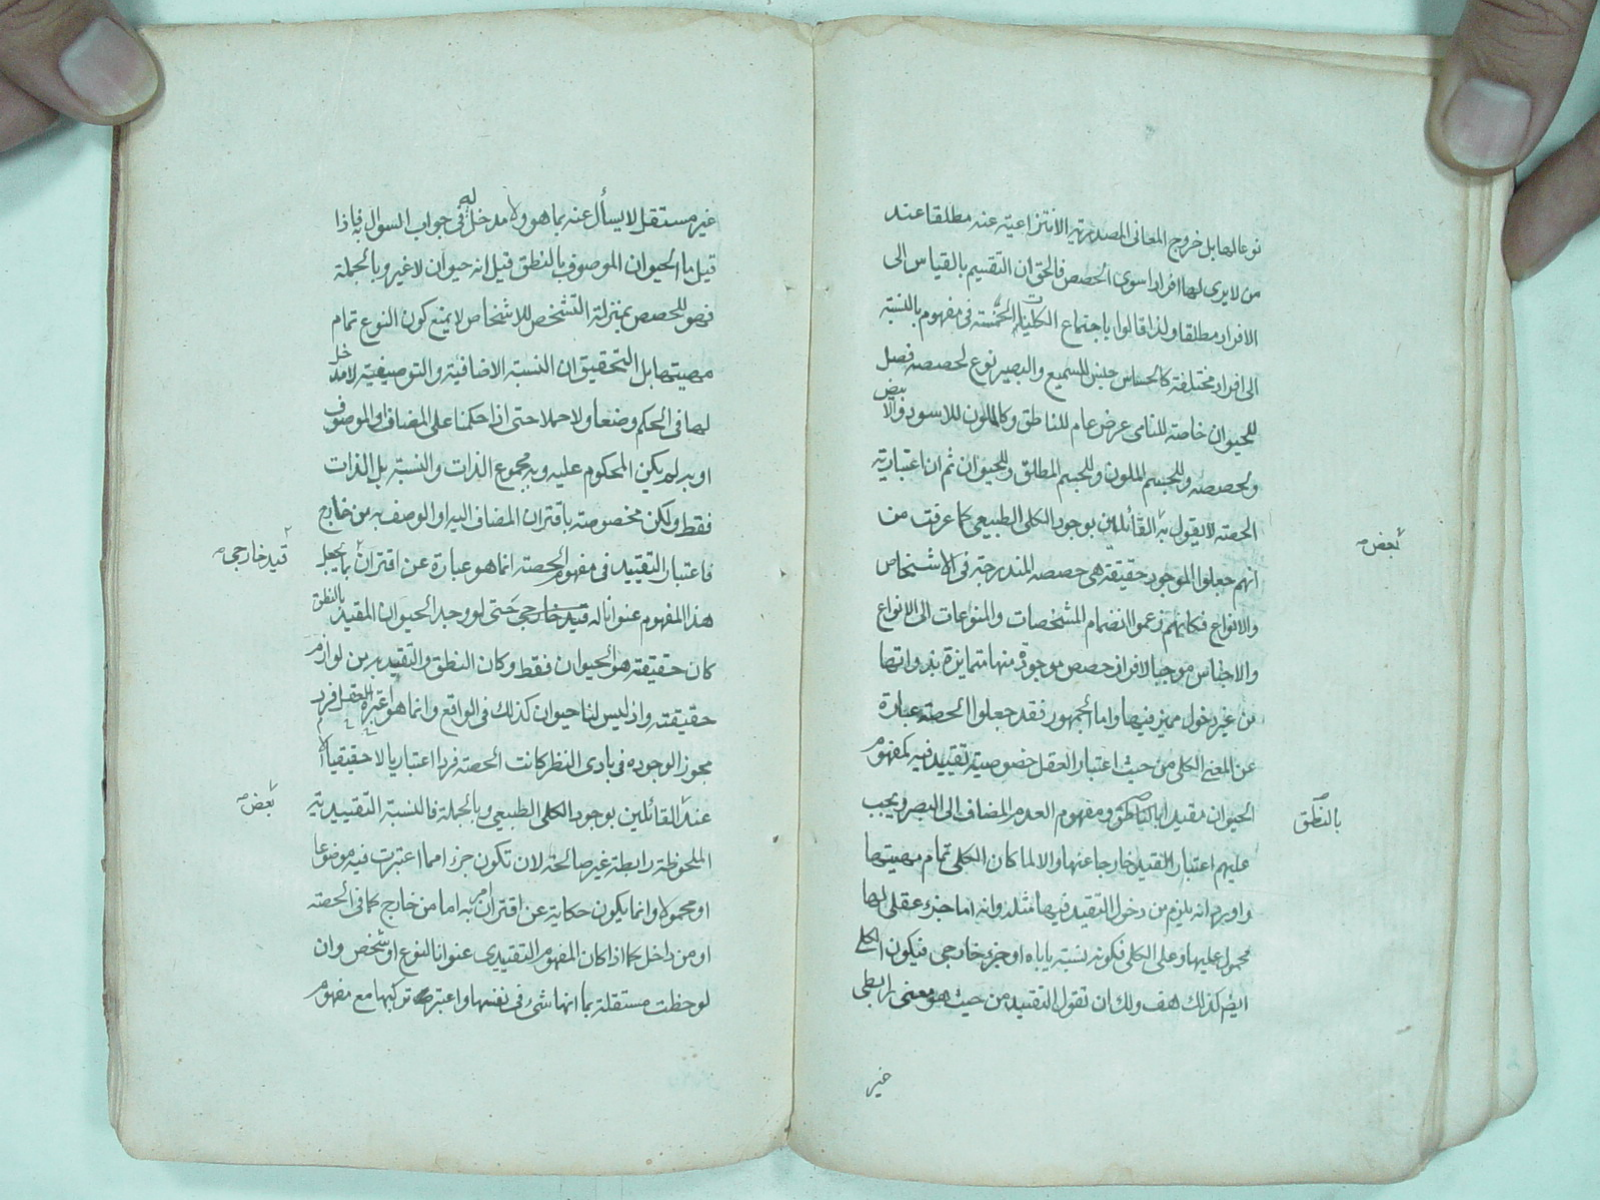 نوعا لها بل خروج المعانى المصدرية الانتزاعية عنه مطلقا عند
من لا يرى لها افرادا سوى الحصص فالحق ان التقسيم بالقياس الى
الافراد مطلقا ولذا قالوا باجتماع الكليات الخمسة فى مفهوم بالنسبة
الى افراد مختلفة كالحساس جنس للسميع والبصير نوع لحصصه فصل
للحيوان خاصة للنامى عرض عام للناطق وكالملون للاسود والابيض
ولحصصه وللجسم الملون وللجسم المطلق وللحيوان ثم ان اعتبارية
الحصة لا يقول به القائلين بوجود الكلى الطبيعى كما عرفت من
بعض صح
انهم جعلوا الموجود حقيقة هى حصصه المندرجة فى الاشخاص
والانواع فكانهم زعموا انضمام المشخصات والمنوعات الى الانواع
والاجناس موجبا لافراز حصص موجودة منها متمايزة بذواتها
من غير دخول مميز فيها واما الجمهور فقد جعلوا الحصة عبارة
عن المعنى الكلى من حيث اعتبار العقل خصوصية تقييد فيه كمفهوم
الحيوان مقيدا بالناطق ومفهوم العدم المضاف الى البصر ويجب
بالنطق
عليهم اعتبار التقييد خارجا عنها والا لما كان الكلى تمام مهيتها
واورد انه يلزم من دخول التقييد فيها مثلد وانه اما جزء عقلى لها
محمول عليها وعلى الكلى فكونه نسبة ياباه او جزء خارجى فيكون الكلى
ايضا كذلك هف ولك ان تقول التقييد من حيث هو معنى رابطى
غير
غير مستقل لا يسأل عنه بما هو ولا مدخل له فى جواب السوال به فاذا
قيل ما الحيوان الموصوف بالنطق قيل انه حيوان لا غير وبالجملة
فهو للحصص بمنزلة التشخص للاشخاص لا يمنع كون النوع تمام
مهيتها بل التحقيق ان النسبة الاضافية والتوصيفية لا مدخل
لها فى الحكم وضعا ولا حملا حتى اذا حكمنا على المضاف او الموصوف
او به لم يكن المحكوم عليه وبه مجموع الذات والنسبة بل الذات
فقط ولكن مخصوصة باقتران المضاف اليه او الوصف به من خارج
فاعتبار التقييد فى مفهوم الحصة انما هو عبارة عن اقتران بما يجعل
قيد خارجى صح
هذا المفهوم عنوانا له قيد خارجى حتى لو وجد الحيوان المقيد بالنطق
كان حقيقته هو الحيوان فقط وكان النطق والتقييد به من لوازم
حقيقته واذ ليس لنا حيوان كذلك فى الواقع وانما هو اعتبره العقل فرد
مجوز الوجوده فى بادى النظر كانت الحصة فردا اعتباريا لا حقيقيا الا
عند القائلين بوجود الكلى الطبيعى وبالجملة فالنسبة التقييدية
بعض صح
الملحوظة رابطة غير صالحة لان تكون جزء امما اعتبرت فيه موضوعا
او محمولا وانما يكون حكاية عن اقتران امر به اما من خارج كما فى الحصة
او من داخل كما اذا كان المفهوم التقييدى عنوانا لنوع او شخص وان
لوحظت مستقلة بما انها شىء فى نفسها واعتبر تركبها مع مفهوم